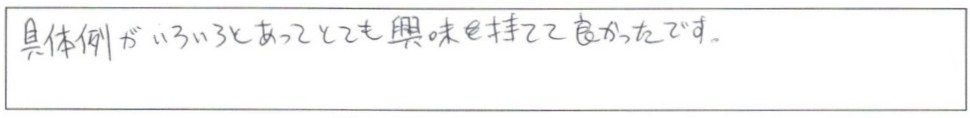 具体例がいろいろとあってとても興味を持てて良かったです。